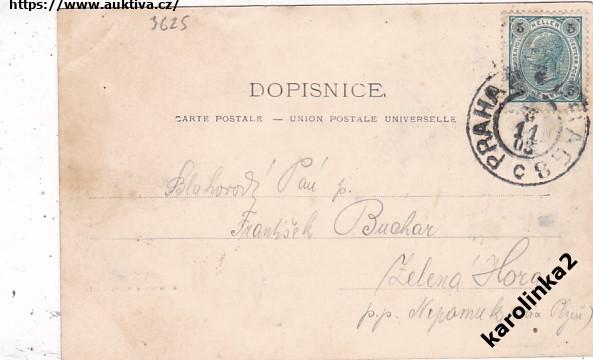 https://www.auktiva.cz/
3625
5 HELLER 5
DOPISNICE.
CARTE POSTALE — UNION POSTALE UNIVERSELLE
PRAHA
11
03
68
C
Blahorodý Pán p.
František Buchar
Zelená Hora
p.p. Nepomuk
karolinka2